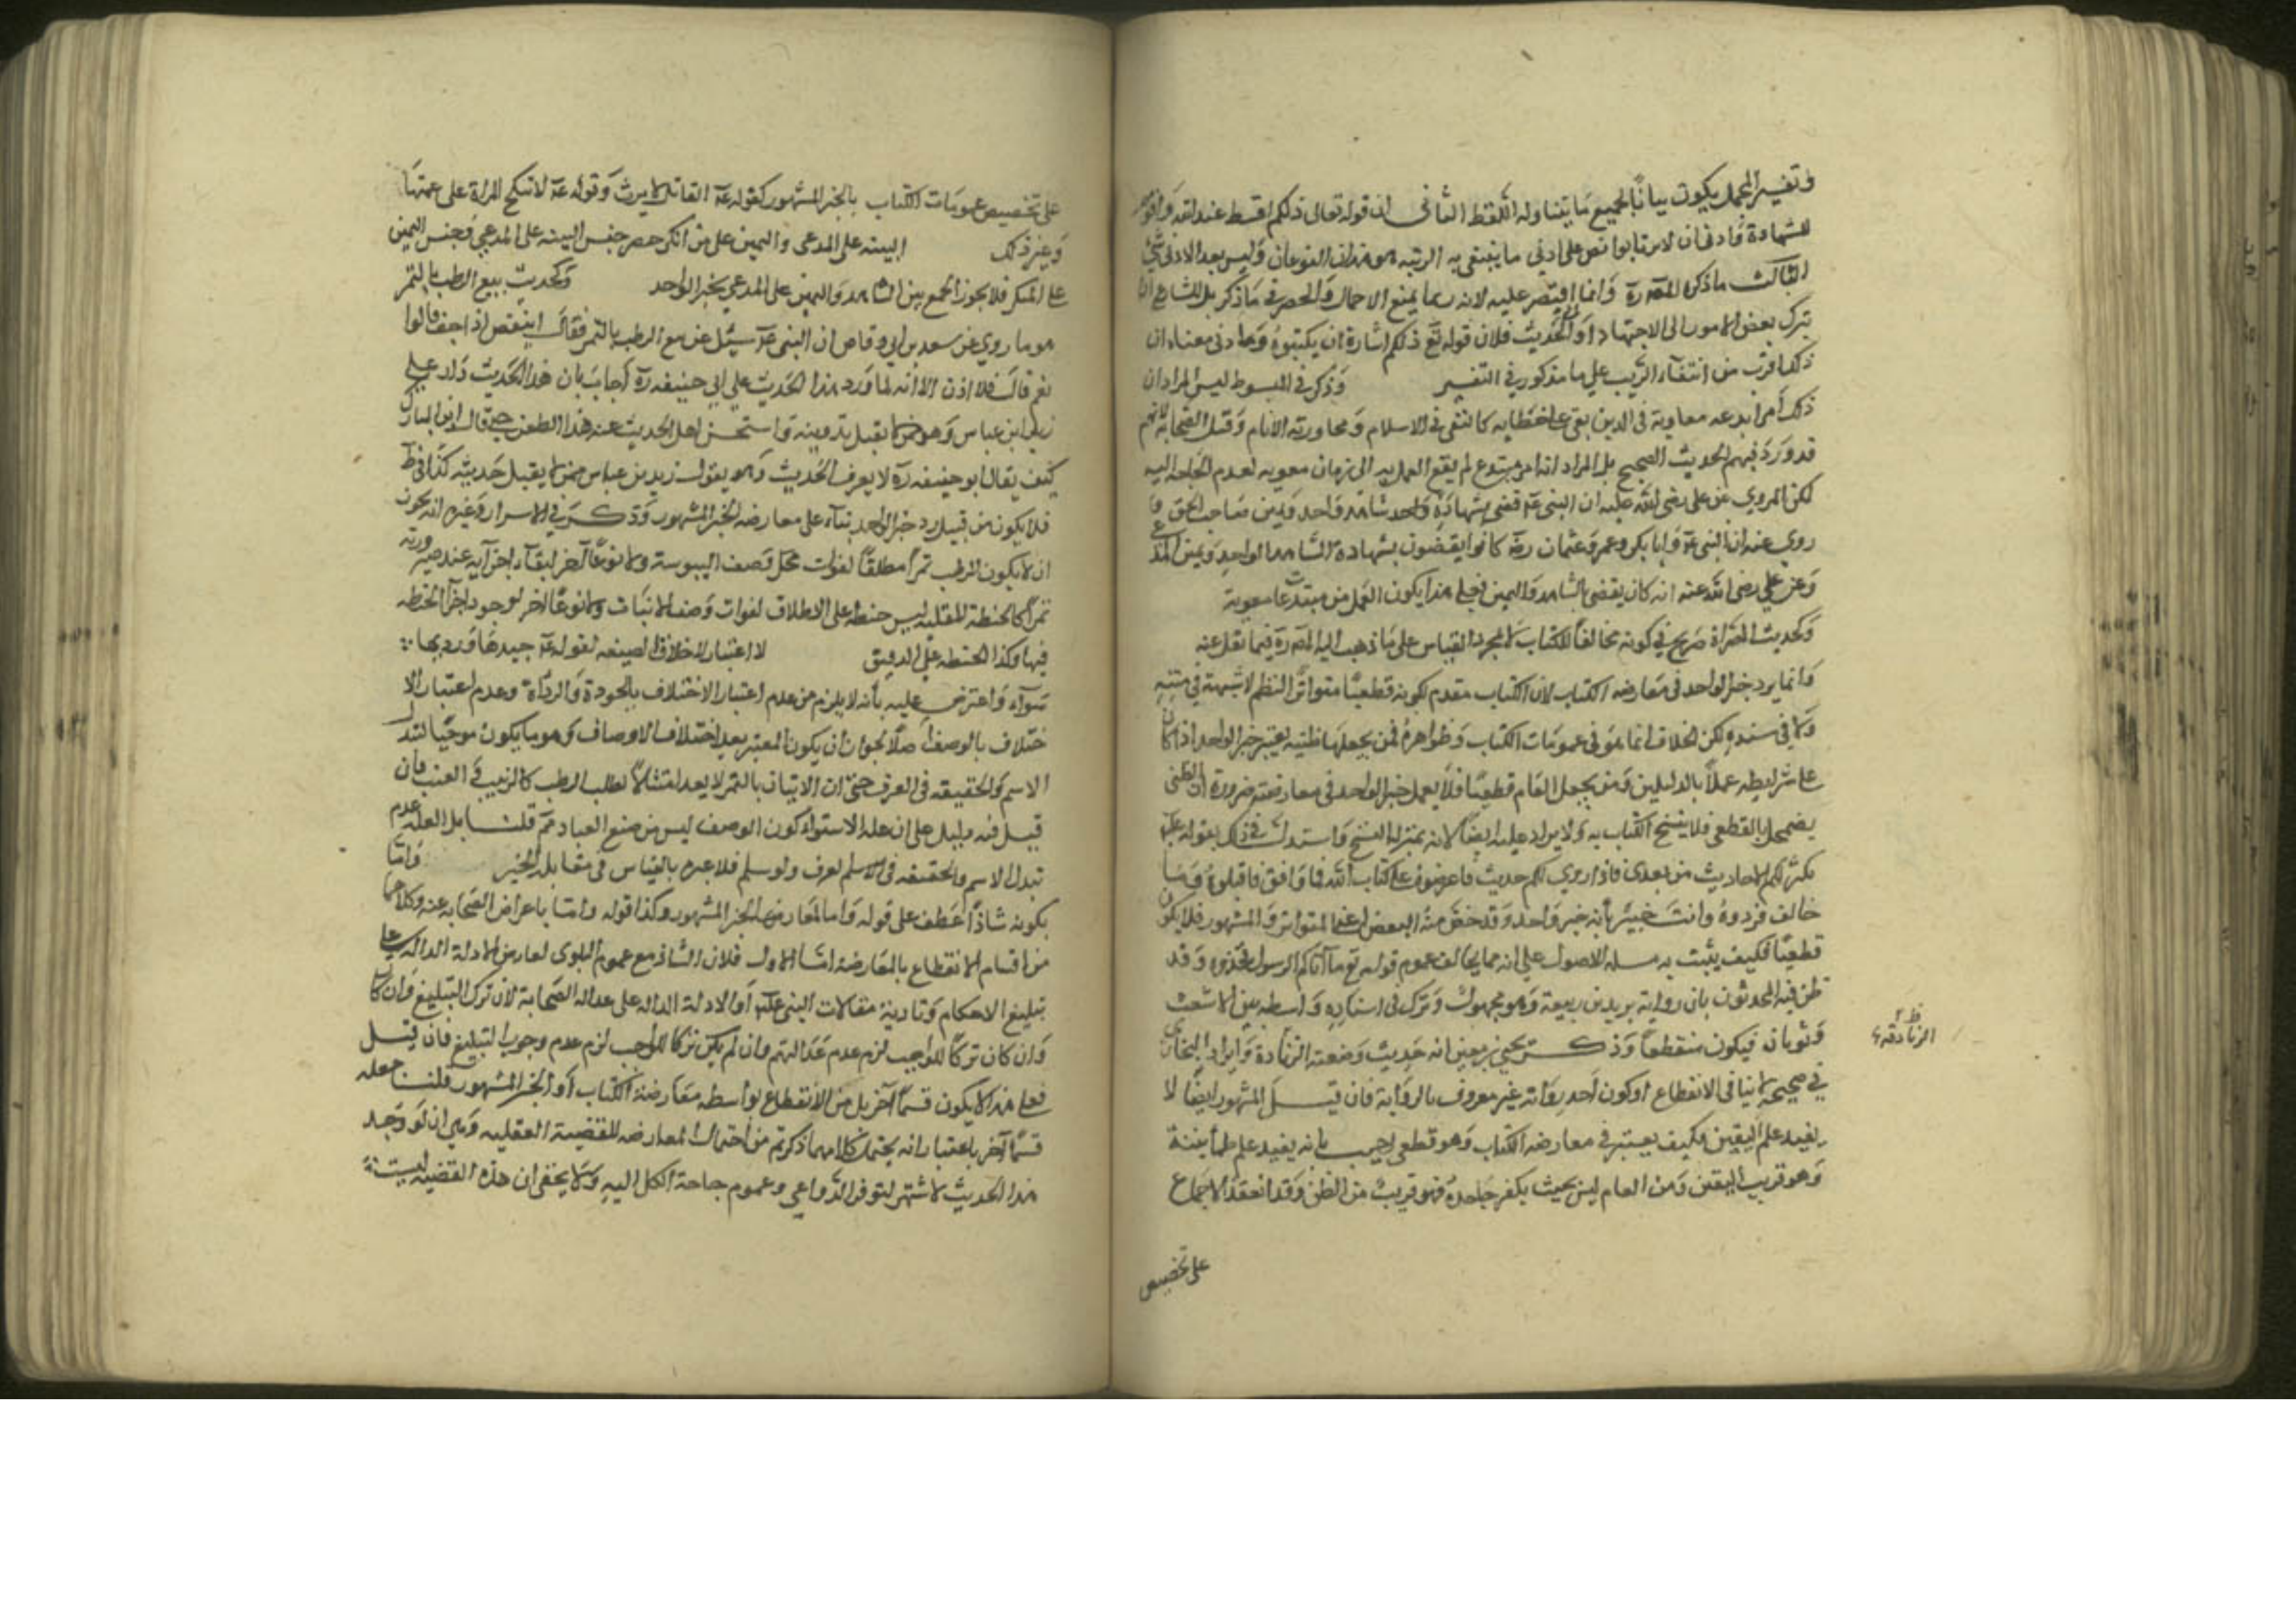 وتفسير المجمل يكون بيانًا لجميع ما يتناوله اللفظ الثاني ان قوله تعالى ذلكم اقسط عند الله واقوم
للشهادة وادنى ان لا ترتابوا نص على ادنى ما ينتفى به الريبه هو هذان النوعان وليس بعد الادنى شئ
الثالث ما ذكره المصـ رة وانما اقتصر عليه لانه ربما يمنع الاجمال والحصر في ما ذكر بل للشارع ان
يترك بعض الامور الى الاجتهاد او الحديث فلان قوله تع ذلكم اشارة ان يكتبوه وهادنى معناه ان
ذلك اقرب من انتفاء الريب على ما مذكور في التفسير وذكر في المبسوط ليس المراد ان
ذلك امر ابدعه معاوية في الدين بقى على خطايه كالنفى في الاسلام ومحاورته الانام وقتل الصحابة لانهم
قد ورد فيهم الحديث الصحيح بل المراد انه امر مبتدع لم يقع العمل به الى زمان معويه لعدم الحاجة اليه
لكن المروي عن على رضى الله عليه ان النبى عم قضى بشهادة واحد شاهد واحد ويمين صاحب الحق و
روى عنه ان النبى عم وابا بكر وعمر وعثمان رضه كانوا يقضون بشهادة الشاهد الواحد ويمين المدعى
وعن على رضى الله عنه انه كان يقضى بالشاهد واليمين فعلى هذا يكون العمل من مبتدعات معوية
وكحديث المصراة صريح في كونه مخالفًا للكتاب لا لمجرد القياس على ما ذهب اليه المصـ رة فيما نقل عنه
وانما يرد خبر الواحد في معارضه الكتاب لان الكتاب مقدم لكونه قطعيًا متواتر النظم لا شبهة في متنه
ولا في سنده لكن الخلاف انما هو في عمومات الكتاب وظواهره فمن يجعلها ظنيه يعتبر خبر الواحد اذا كان
على شرايطه عملًا بالدليلين ومن يجعل العام قطعيًا فلا يعمل خبر الواحد في معارضته ضرورة ان الظنى
يضمحل بالقطعى فلا ينسخ الكتاب به ولا يزاد عليه ايضًا لانه بمنزلة النسخ واستدل في ذلك بقوله عم
يكثر لكم الاحاديث من بعدى فاذا روى لكم حديث فاعرضوه على كتاب الله فما وافق فاقبلوه وما
خالف فردوه وانت خبير بأنه خبر واحد وقد خص منه البعض اعنى المتواتر والمشهور فلا يكون
قطعيًا فكيف يثبت به مسله الاصول على انه مما يخالف عموم قوله تع ما آتاكم الرسول فخذوه وقد
طعن فيه المحدثون بان رواية يزيد بن ربيعة وهو مجهول وترك في اسناده واسطه بين الاشعث
وثوبان فيكون منقطعًا وذكر يحيى بن معين انه حديث وضعته الزنادة وايراد البخارى
ظ الزنادقة
في صحيحه لا ينافى الانقطاع او كون احد رواته غير معروف بالرواية فان قيل المشهور ايضًا لا
يفيد علم اليقين فكيف يعتبر في معارضه الكتاب وهو قطعى اجيب بانه يفيد علم طمأنينة
وهو قريب اليقين ومن العام ليس بحيث يكفر جاحده فهو قريب من الظن وقد انعقد الاجماع
على تخصيص
على تخصيص عمومات الكتاب بالخبر المشهور كقوله عم القاتل لا يرث وقوله عم لا تنكح المراة على عمتها
وغير ذلك البينه على المدعى واليمين على من انكر حصر جنس البينه على المدعى وجنس اليمين
على المنكر فلا يجوز الجمع بين الشاهد واليمين على المدعى بخبر الواحد وكحديث بيع الرطب بالتمر
هو ما روي عن سعد بن ابى وقاص ان النبى عم سئل عن بيع الرطب بالتمر فقال اينقص اذا جف قالوا
نعم قال فلا اذن الا انه لما ورد هذا الحديث على ابي حنيفه رة اجاب بان هذا الحديث دار على
زيد ابن عباس وهو ممن لا يقبل حديثه واستحسن اهل الحديث عنه هذا الطعن حتى قال ابن المبارك
كيف يقال ابو حنيفه رة لا يعرف الحديث وهو يقول زيد بن عباس ممن لا يقبل حديثه كذا في ط
فلا يكون من قبيل رد خبر الواحد بناء على معارضه الخبر المشهور وذكر في الاسرار وغيره انه يجوز
ان لا يكون الرطب تمرًا مطلقًا لفوات محل وصف اليبوسة ولا نوعًا آخر لبقاء اجزآيه عند صيرورته
تمرًا كالحنطة المقليه ليس حنطه على الاطلاق لفوات وصف الانبات ولا نوعًا اخر لوجود اجزاء الحنطه
فيها وكذا الحنطه على الدقيق لا اعتبار لاختلاف الصيغه لقوله عم جيدها ورديها
سواء واعترض عليه بأنه لا يلزم من عدم اعتبار الاختلاف بالجودة والرداءة وعدم اعتبار الا
ختلاف بالوصف اصلًا لجواز ان يكون المعتبر بعد اختلاف الاوصاف وهو ما يكون موجبًا لتبدل
الاسم والحقيقه في العرف حتى ان الاتيان بالتمر لا يعد امتثالًا لطلب الرطب كالزبيب في العنب فان
قيل فنه دليل على ان عله الاستواء كون الوصف ليس من صنع العباد ثم قلنا بل العله عدم
تبدل الاسم والحقيقه في العرف ولو سلم فلا عبره بالقياس في مقابله الخبر واما
بكونه شاذًا عطف على قوله واما لمعارضه الخبر المشهور وكذا قوله واما باعراض الصحابه عنه وكلاهما
من اقسام الانقطاع بالمعارضه اما الاول فلان الشاذ مع عموم البلوى لعارض الادلة الداله على
تبليغ الاحكام وتادية مقالات النبى عم او الادلة الداله على عداله الصحابة لان ترك التبليغ وان كان
وان كان تركًا للواجب لزم عدم عدالتهم وان لم يكن تركا للواجب لزم عدم وجوب التبليغ فان قيل
فعلى هذا لا يكون قسمًا آخر بل من الانقطاع بواسطه معارضة الكتاب او الخبر المشهور قلنا جعله
قسمًا آخر باعتبار انه يحتمل كلا مهما ذكرتم من احتمال المعارضه للقضية العقليه وهي انه لو وجد
هذا الحديث لاشتهر لتوفر الدواعى وعموم حاجة الكل اليه ولا يخفى ان هذه القضيه ليست